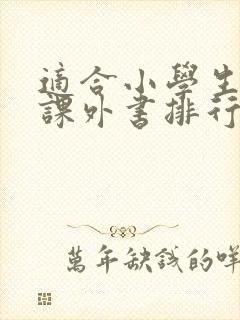 適合小學生
課外書排行
萬年缺錢的咩